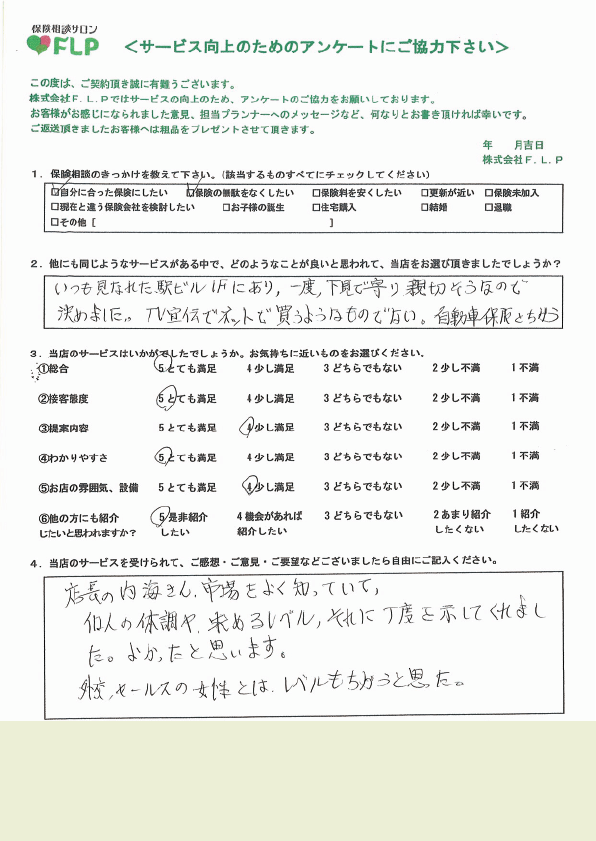 保険相談サロン
FLP
＜サービス向上のためのアンケートにご協力下さい＞
この度は、ご契約頂き誠に有難うございます。
株式会社F.L.Pではサービスの向上のため、アンケートのご協力をお願いしております。
お客様がお感じになられました意見、担当プランナーへのメッセージなど、何なりとお書き頂ければ幸いです。
ご返送頂きましたお客様へは粗品をプレゼントさせて頂きます。
年 月吉日
株式会社F.L.P
1．保険相談のきっかけを教えて下さい。(該当するものすべてにチェックしてください)
□自分に合った保険にしたい □保険の無駄をなくしたい □保険料を安くしたい □更新が近い □保険未加入
□現在と違う保険会社を検討したい □お子様の誕生 □住宅購入 □結婚 □退職
□その他 [ ]
2．他にも同じようなサービスがある中で、どのようなことが良いと思われて、当店をお選び頂きましたでしょうか？
いつも見なれた駅ビル1Fにあり，一度，下見で寄り 親切そうなので
決めました。TV宣伝でネットで買うようなものでない。自動車保険とちがう
3．当店のサービスはいかがでしたでしょうか。お気持ちに近いものをお選びください。
①総合 5とても満足 4少し満足 3どちらでもない 2少し不満 1不満
②接客態度 5とても満足 4少し満足 3どちらでもない 2少し不満 1不満
③提案内容 5とても満足 4少し満足 3どちらでもない 2少し不満 1不満
④わかりやすさ 5とても満足 4少し満足 3どちらでもない 2少し不満 1不満
⑤お店の雰囲気、設備 5とても満足 4少し満足 3どちらでもない 2少し不満 1不満
⑥他の方にも紹介 5是非紹介 4機会があれば 3どちらでもない 2あまり紹介 1紹介
じたいと思われますか？ したい 紹介したい したくない したくない
4．当店のサービスを受けられて、ご感想・ご意見・ご要望などございましたら自由にご記入ください。
店長の内海さん，市場をよく知っていて，
個人の体調や，求めるレベル，それに丁度を示してくれまし
た。よかったと思います。
外交，セールスの女性とは，レベルもちがうと思った。